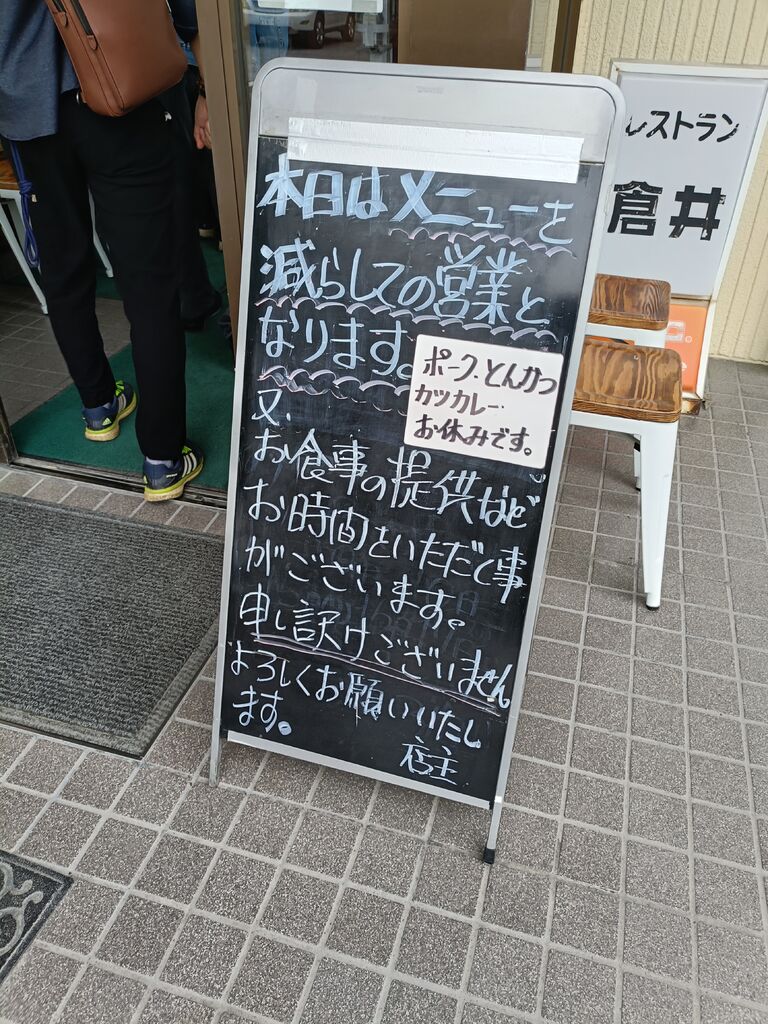 本日はメニューを
減らしての営業と
なります。
ポーク、とんかつ
カツカレー
お休みです。
又、
お食事の提供など
お時間をいただく事
がございます。
申し訳けございません
よろしくお願いいたし
ます。
店主
レストラン
倉井